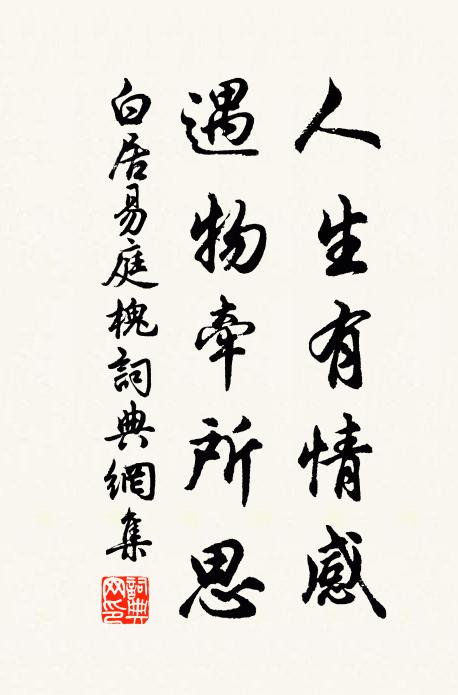 人生有情感
遇物牽所思
白居易庭槐詞典網集
詞典網印